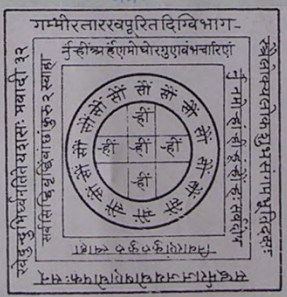 गम्भीरताररवपूरितदिग्विभाग-
स्त्रैलोक्यलोकशुभसंगमभूतिदक्षः
सद्धर्मराजजयघोषणघोषकः सन्
खेदुन्दुभिर्ध्वनतितेयशसः प्रवादी ३२
ह्रींअर्हंणमोघोरगुणबंभचारिणं
नमो ह्रां ह्रीं ह्रूं ह्रौं ह्रः
कुरु कुरु स्वाहा
सर्वसिद्धिवृद्धिवांछांकुरु २ स्वाहा
सौं सौं सौं सौं सौं सौं सौं सौं सौं सौं सौं सौं सौं सौं सौं सौं
ह्रीं
ह्रीं ह्रीं ह्रीं
ह्रीं